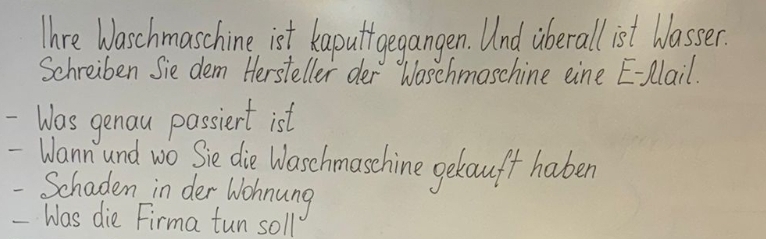 Ihre Waschmaschine ist kaputtgegangen. Und überall ist Wasser.
Schreiben Sie dem Hersteller der Waschmaschine eine E-Mail.
- Was genau passiert ist
- Wann und wo Sie die Waschmaschine gekauft haben
- Schaden in der Wohnung
- Was die Firma tun soll